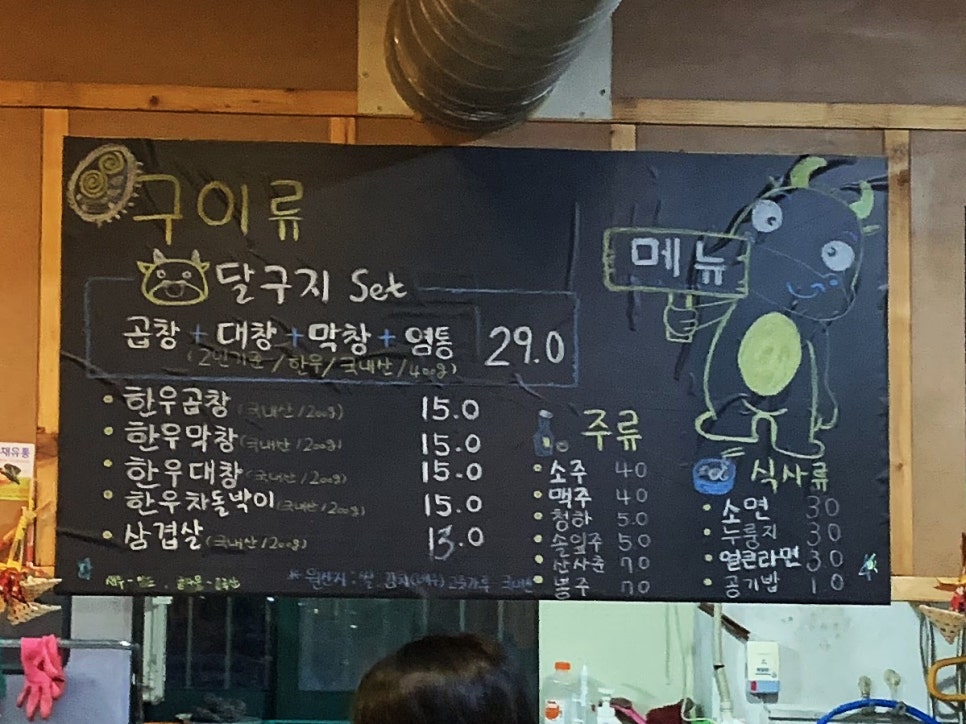 구이류
메뉴
달구지 Set
곱창 + 대창 + 막창 + 염통 29.0
(2인기준/한우/국내산/400g)
한우곱창 (국내산/200g) 15.0
한우막창 (국내산/200g) 15.0
한우대창 (국내산/200g) 15.0
한우차돌박이 (국내산/200g) 15.0
삼겹살 (국내산/200g) 13.0
주류
소주 4 0
맥주 4 0
청하 5.0
솔잎주 5 0
산사춘 7 0
동주 7 0
식사류
소면 3 0
누룽지 3 0
얼큰라면 3 0
공기밥 1 0
* 원산지 : 쌀 김치(배추) 고춧가루 국내산
재유통